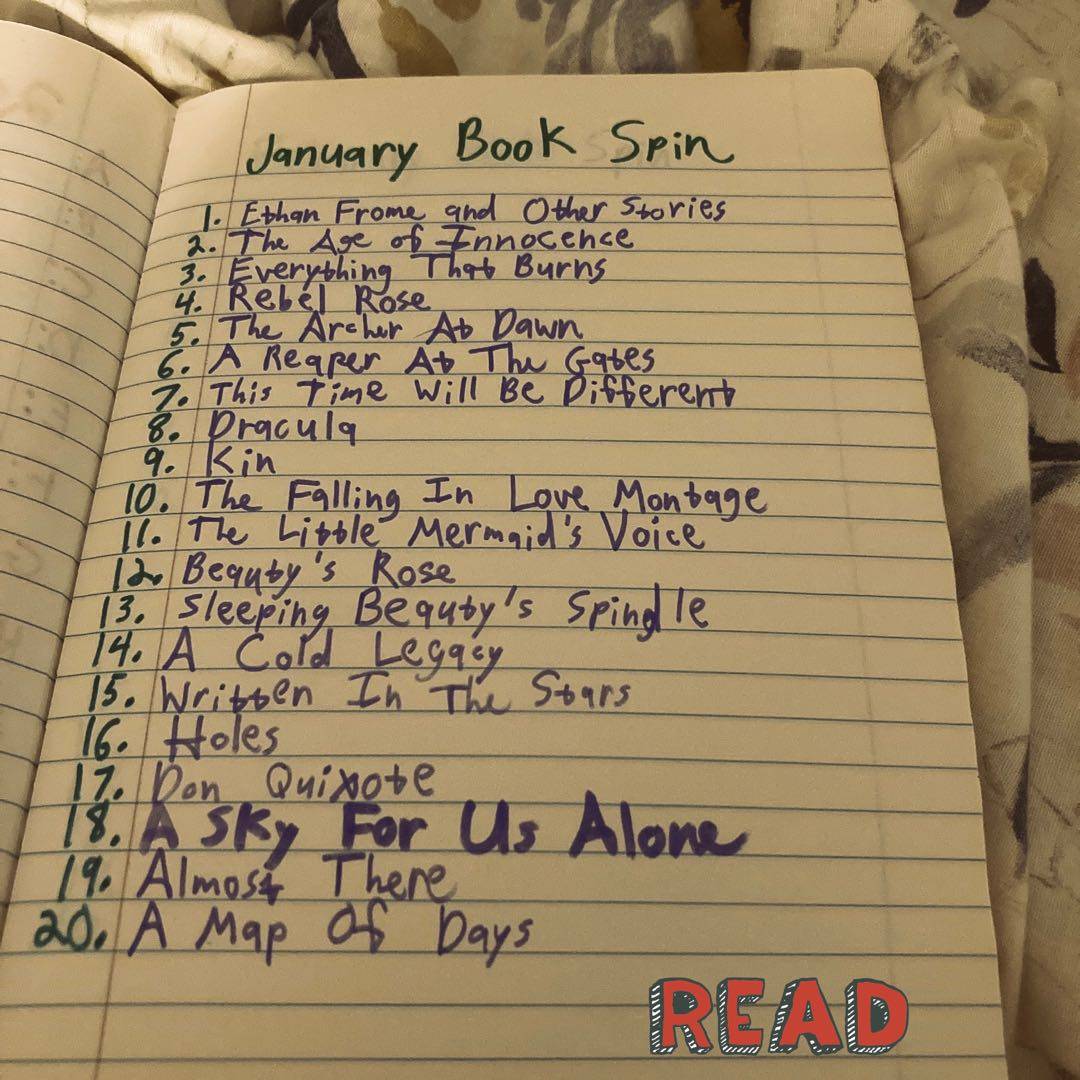 January Book Spin
1. Ethan Frome and Other Stories
2. The Age of Innocence
3. Everything That Burns
4. Rebel Rose
5. The Archer At Dawn
6. A Reaper At The Gates
7. This Time Will Be Different
8. Dracula
9. Kin
10. The Falling In Love Montage
11. The Little Mermaid's Voice
12. Beauty's Rose
13. Sleeping Beauty's Spindle
14. A Cold Legacy
15. Written In The Stars
16. Holes
17. Don Quixote
18. A Sky For Us Alone
19. Almost There
20. A Map Of Days
READ